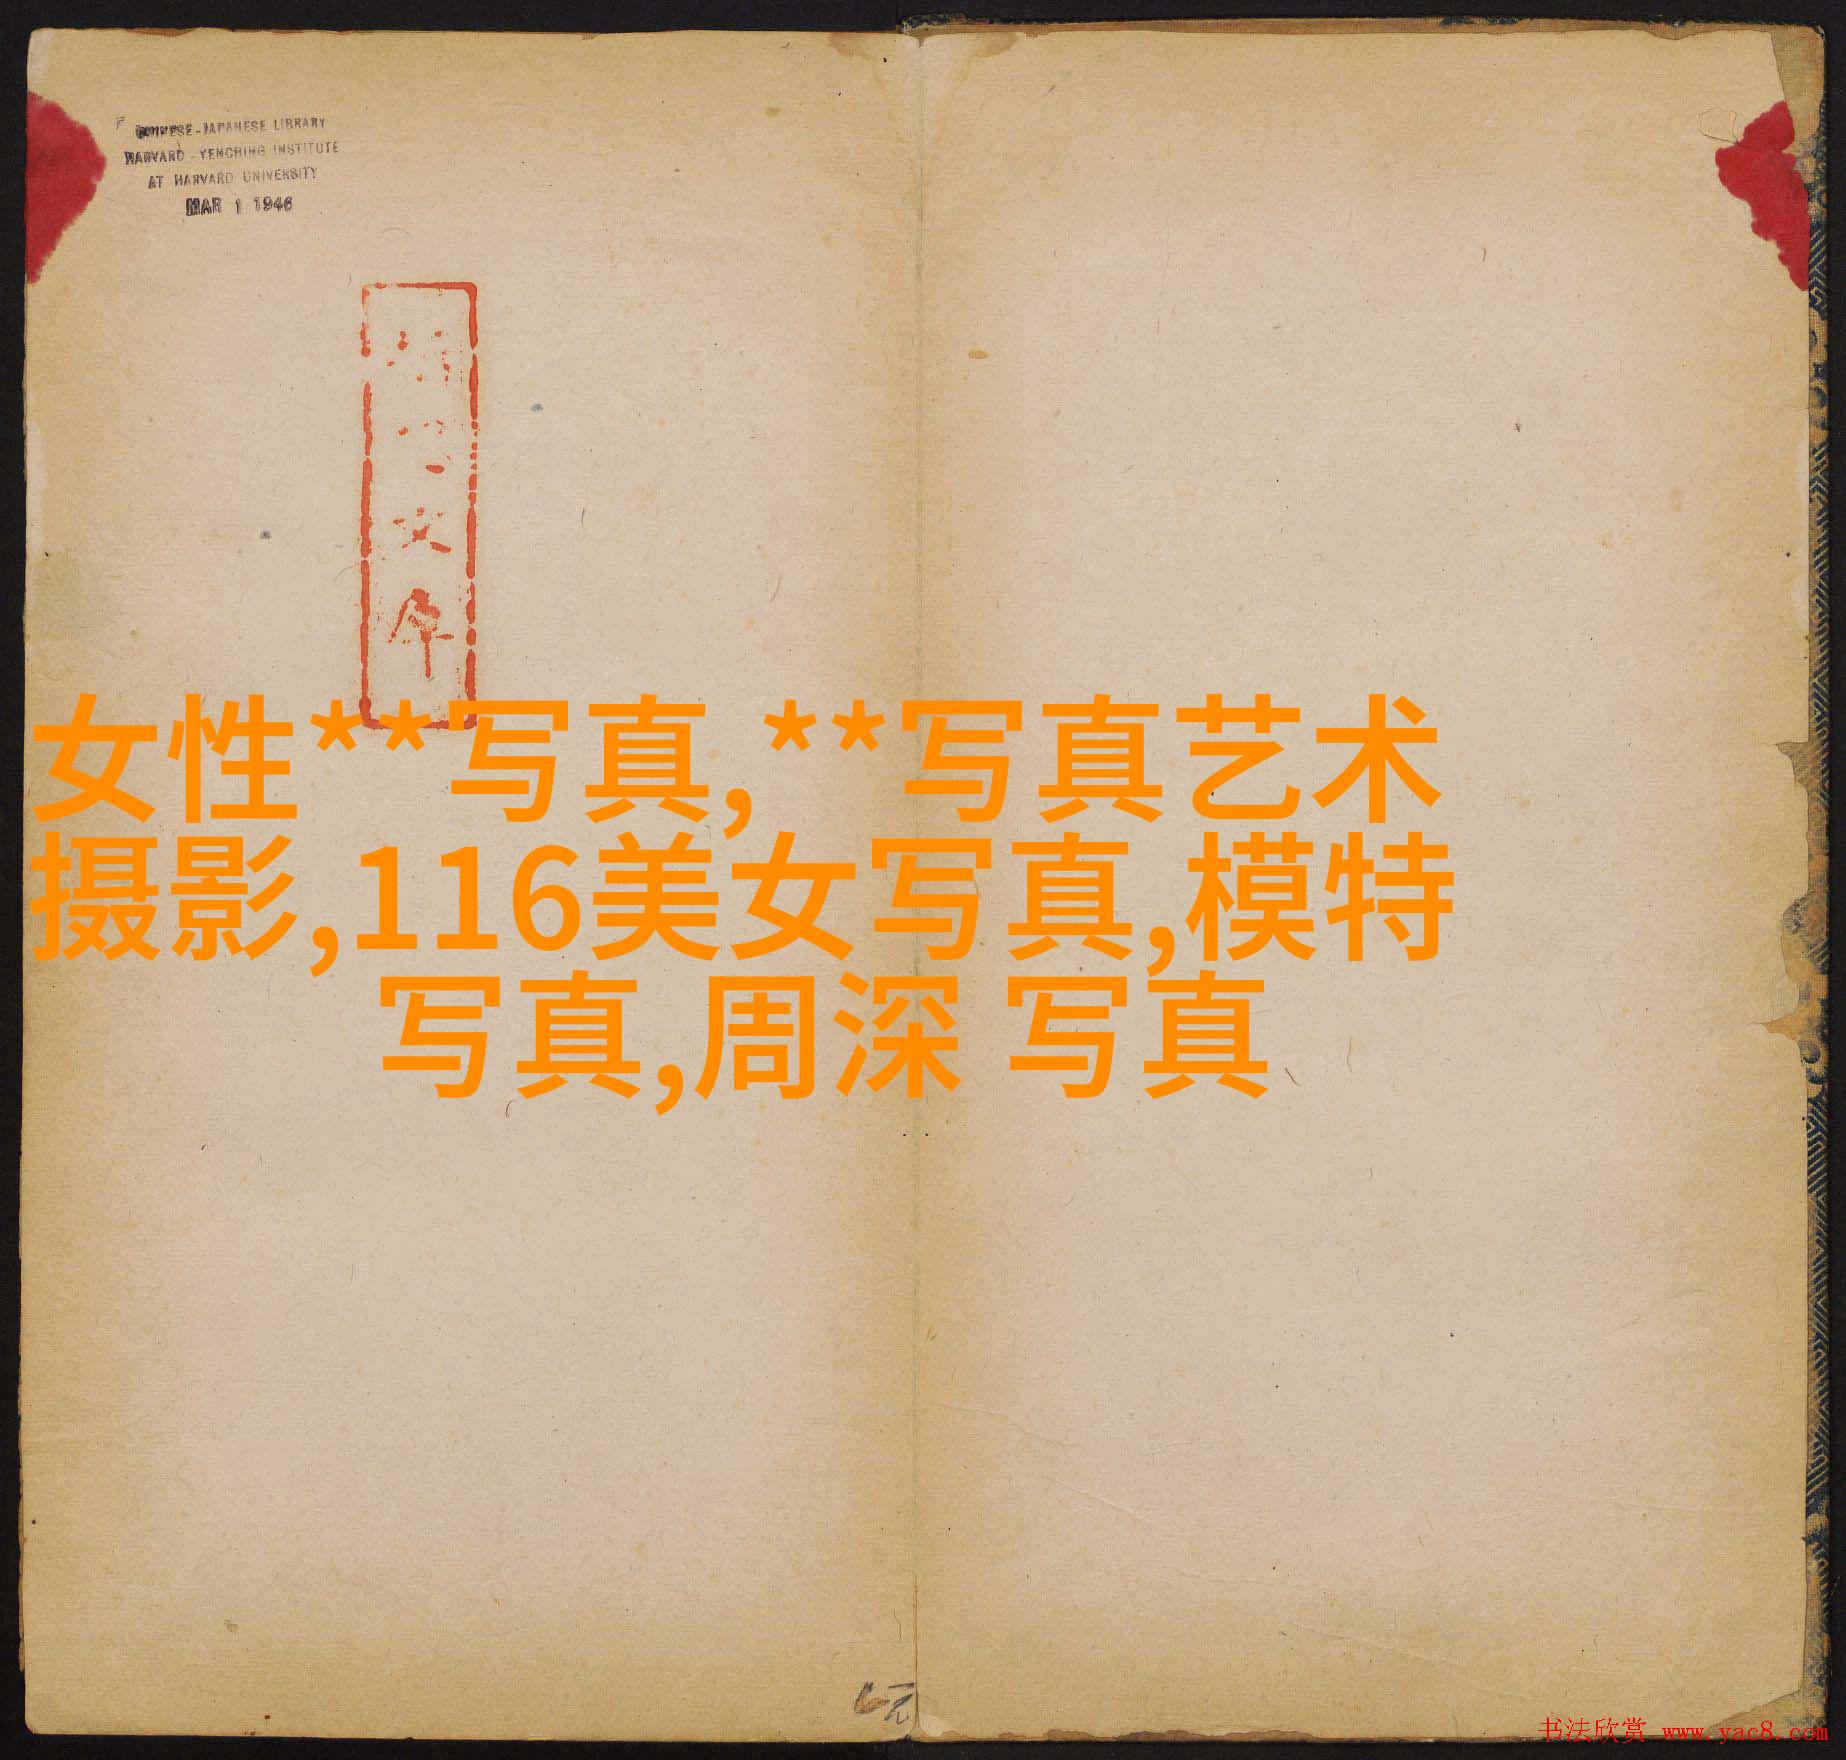 CHINESE-JAPANESE LIBRARY
HARVARD-YENCHING INSTITUTE
AT HARVARD UNIVERSITY
MAR 1 1946
文库
女性**写真,**写真艺术
摄影,116美女写真,模特
写真,周深 写真
6元
书法欣赏 www.yac8.com